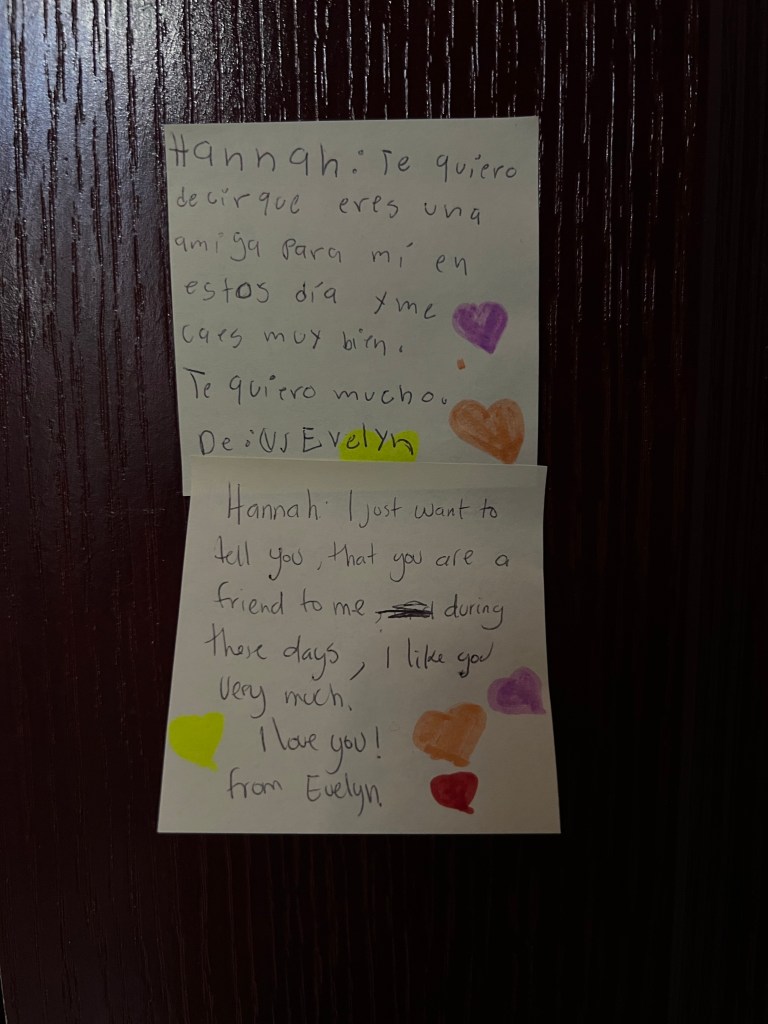 Hannah: Te quiero
decir que eres una
amiga para mí en
estos día y me
caes muy bien.
Te quiero mucho.
De: Evelyn
Hannah: I just want to
tell you, that you are a
friend to me, during
these days, I like you
very much.
I love you!
from Evelyn.